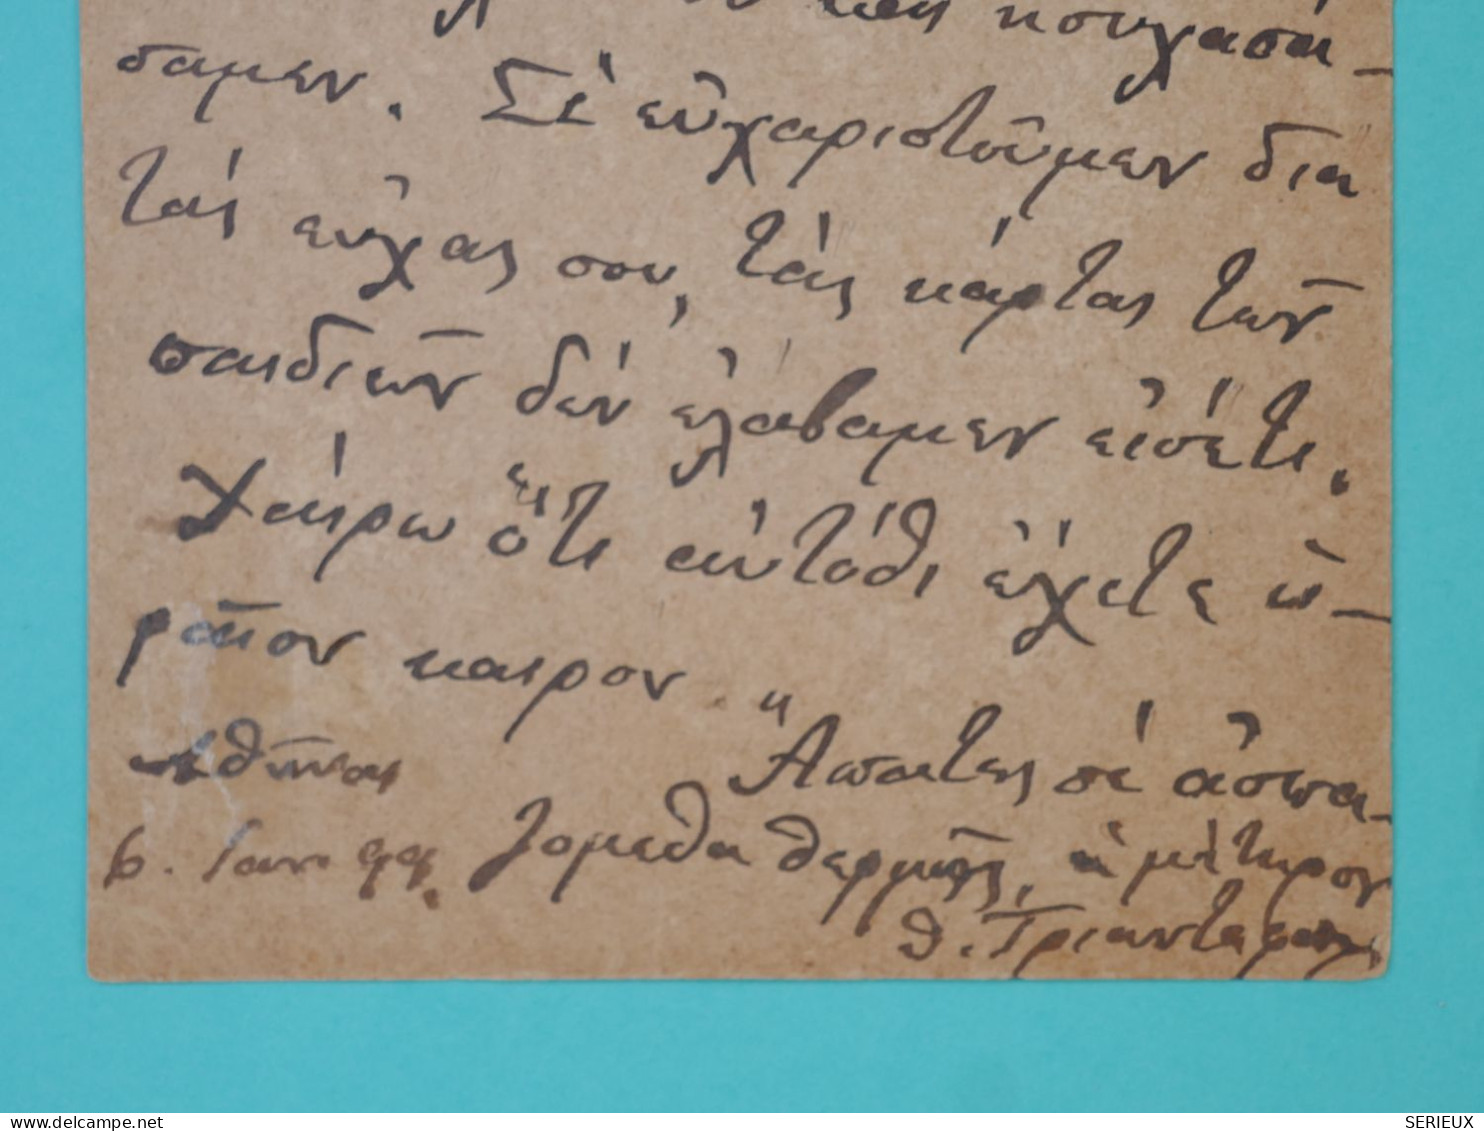 ἡσυχάσα-
σαμεν. Σὲ εὐχαριστοῦμεν δια
τὰς εὐχας σου, τὰς κάρτας τῶν
παιδιῶν δέν ἐλάβαμεν εἰσέτι.
Χαίρω ὅτι αὐτόθι ἔχετε ὡ-
ραῖον καιρον.
Ἀθῆναι Ἅπαντες σὲ ἀσπα-
6. Ιαν. 99. ζομεθα θερμῶς, ἡ μήτηρ σου
Θ. Τριανταφ
www.delcampe.net
SERIEUX